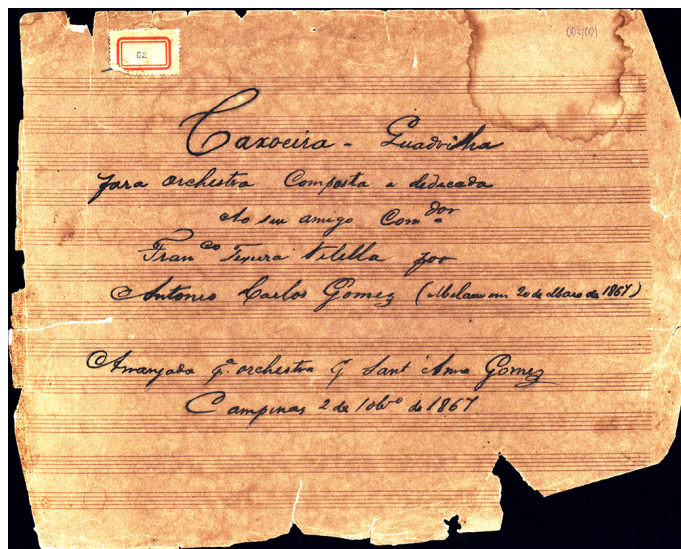 62
003/001
Caxoeira - Quadrilha
para orchestra Composta e dedicada
Ao seu amigo Com.dor
Fran.co Teixeira Vilella por
Antonio Carlos Gomez (Milano em 20 de Março de 1867)
Arranjada p.a orchestra p. Sant'Anna Gomez
Campinas 2 de 10br.o de 1867